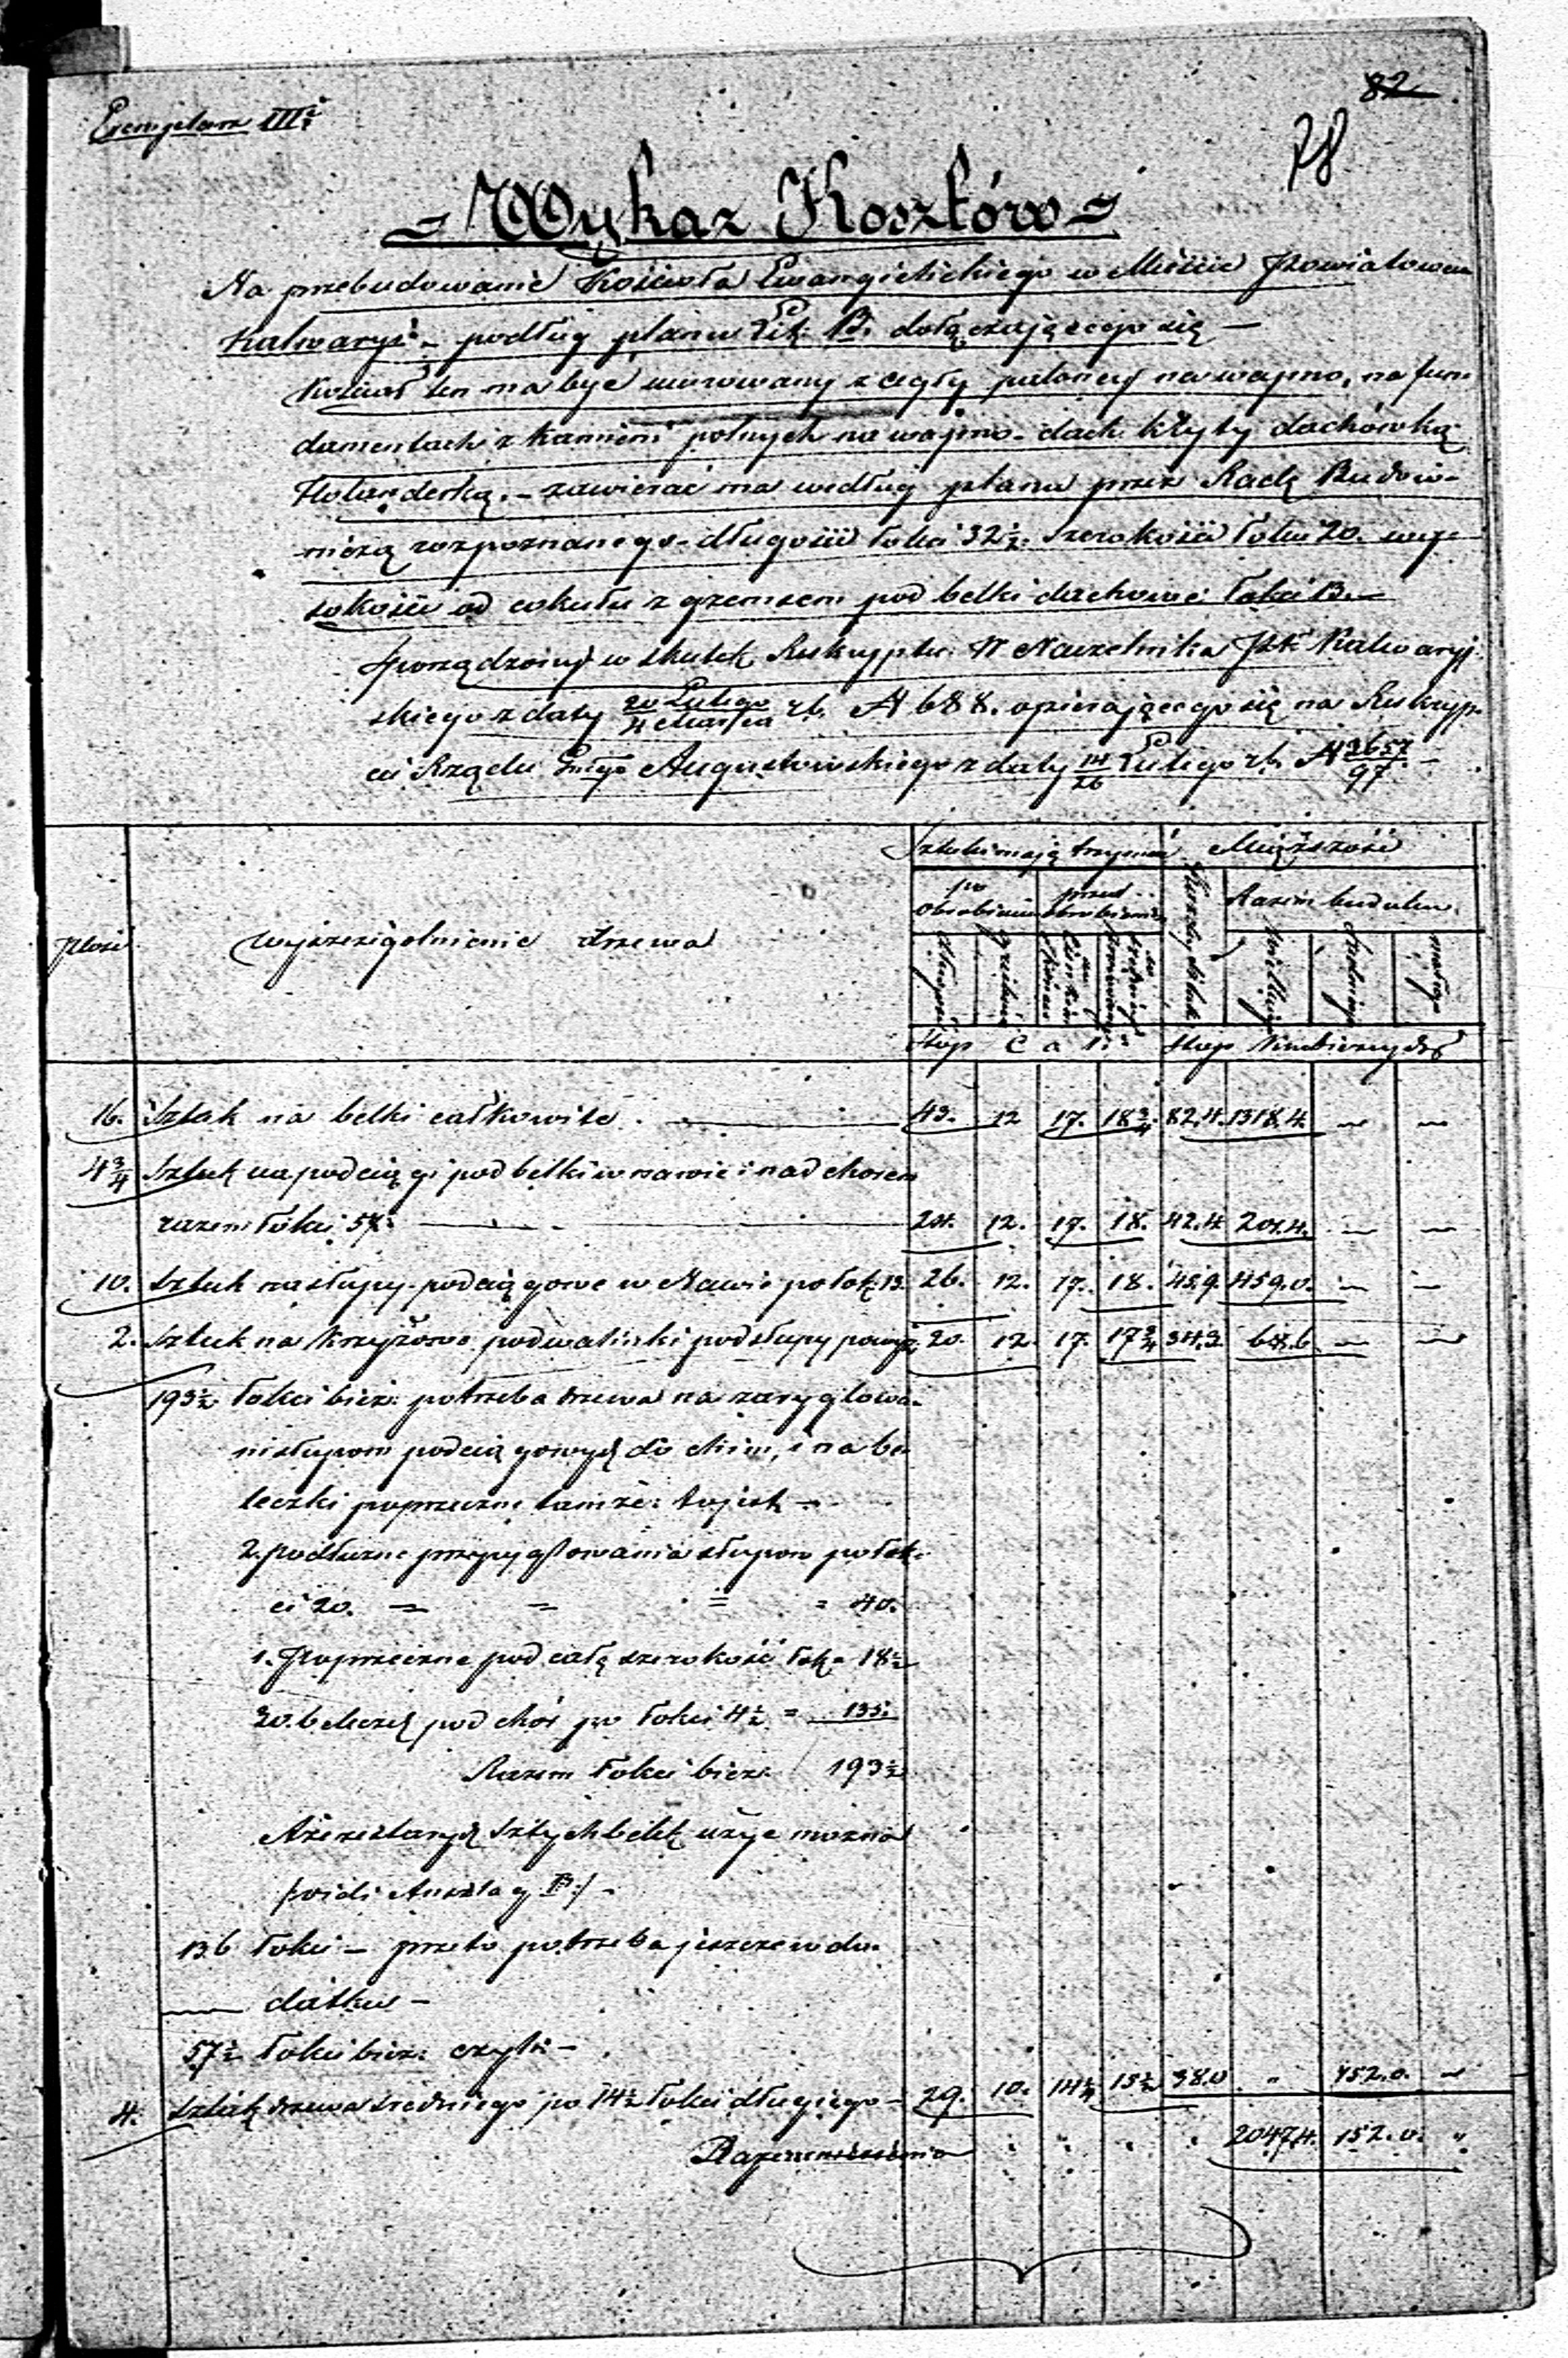 82
Exemplarz III
78
Wykaz Kosztów
Na przebudowanie Kościoła Ewangielickiego w Mieście Powiatowem
Kalwaryi - podług planu Lit. B. dołączającego się —
Kościoł ten ma być murowany z cegły palonej na wapno, na fun-
damentach z kamieni polnych na wapno - dach kryty dachówką
Holenderką. - zawierać ma według planu przez Radę Budow-
niczą rozpoznanego - długości łokci 32½. Szerokości łokci 20. wy-
sokości od cokułu z gzemsem pod belki dachowe łokci 13. —
Sporządzony w skutek Reskryptu W Naczelnika Ptu Kalwaryj-
skiego z daty 20 Lutego / 4 Marca r.b. N 688. opierającego się na Reskryp-
cie Rządu Gubgo Augustowskiego z daty 14/26 Lutego r.b. N 3657/97. —
Sztuki mają trzymać Miąższość
po obrobieniu przed obrobieniem Każdej sztuki Razem budulcu
Ilość Wyszczególnienie drzewa długości grubości w cieńkim końcu Wielkiego Średniego małego
Stop C a l i Stop Kubicznych
16. Sztuk na belki całkowite. — 43. 12 17. 18¾. 82.4. 1318.4. — —
4¾ Sztuk na podciągi pod belki w nawie i nad chorem
razem łokci 57. — 24. 12. 17. 18. 42.4 201.4. — —
10. Sztuk na słupy podciągowe w Nawie po łok. 13. 26. 12. 17. 18. 45.9. 459.0. — —
2. Sztuk na krzyżowe podwalinki pod słupy powyż. 20. 12. 17. 17¾ 34.3. 68.6. — —
193½ łokci bież. potrzeba drzewa na zaryglowa-
ni słupom podciągowych do choru, i na be-
leczki poprzeczne tamże: to jest —
2. podłużne przyryglowania słupow po łok-
ci 20. = = = = 40.
1. Poprzeczne pod całą szerokość łok. 18½
30. beleczek pod chór po łokci 4½ = 135.
Razem łokci bież. 193½
A że ze starych Sztychbelek użyć można
/vide Anszlag B/ —
136 łokci — przeto potrzeba jeszcze w do-
datku —
57½ łokci bież. czyli —
4. Sztuk drzewa średniego po 14½ łokci długiego — 29. 10. 14¼ 15½ 38.0 " 152.0. —
Razem " " " " 2047.4. 152.0. "